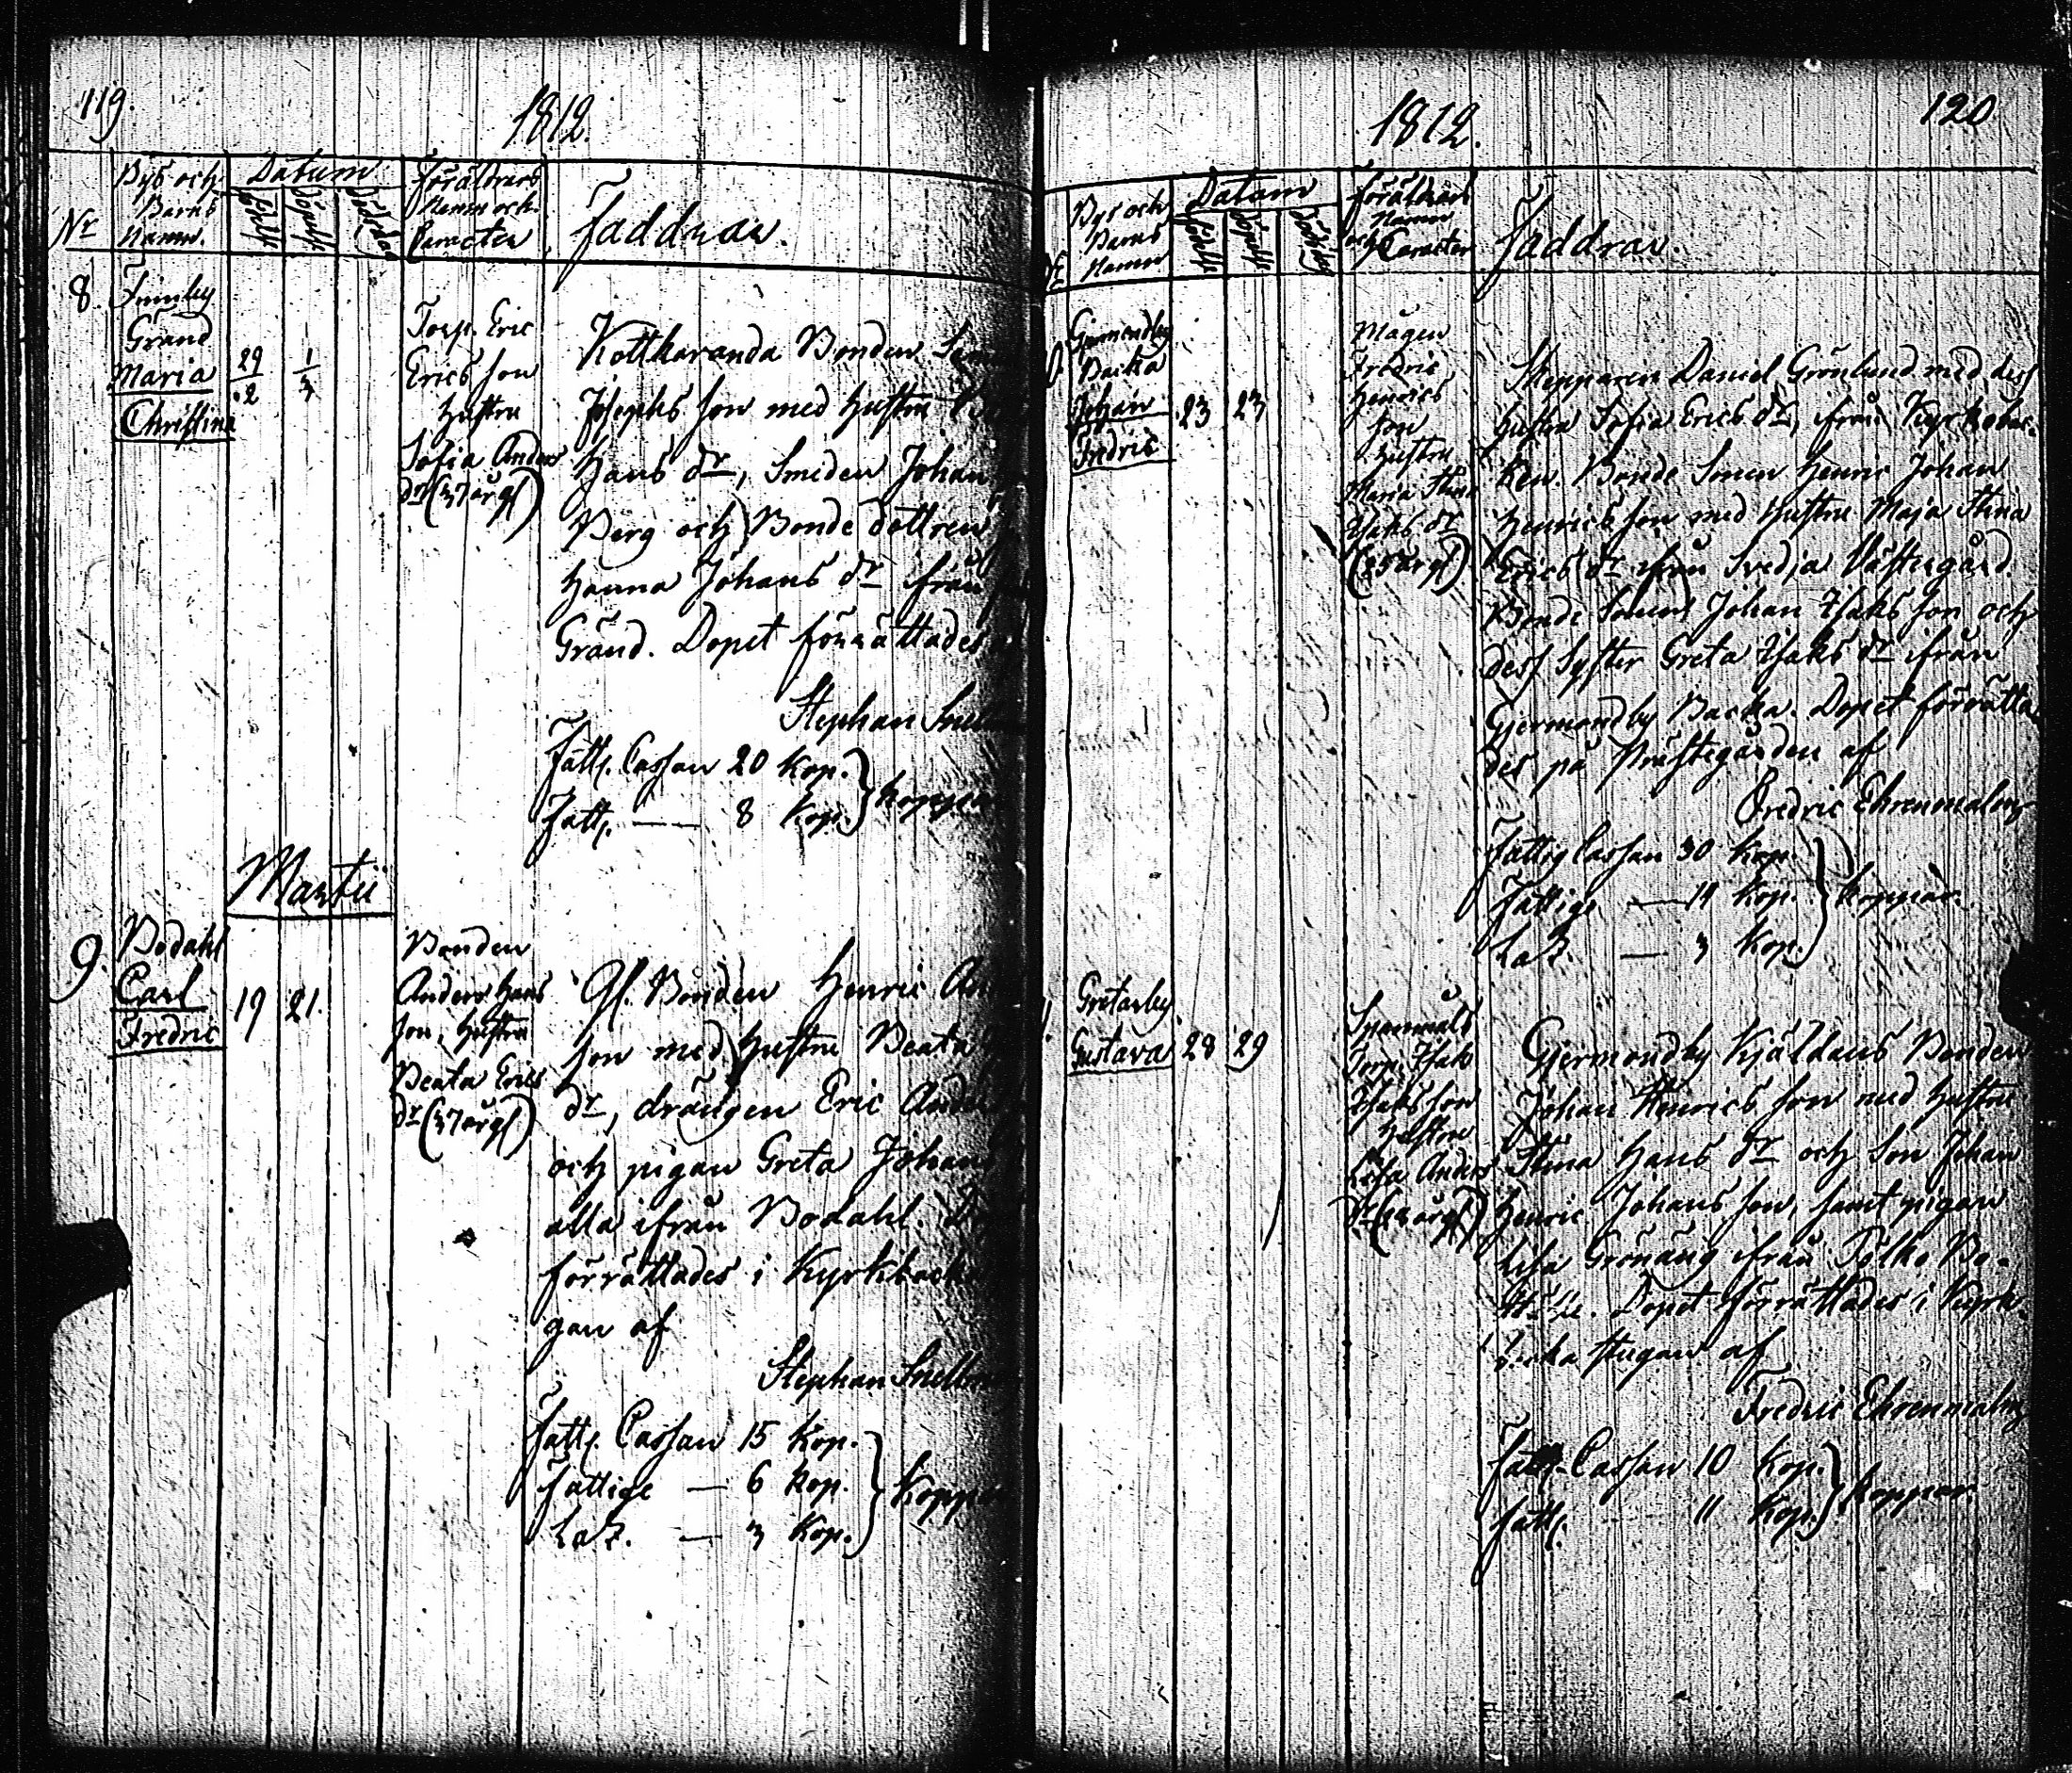 119.
1812.
No
Bys och
Barns
Namn.
Datum
Födelse
Döpelse
Dödsdag
Föräldrars
Namn och
Caracter
Faddrar.
8.
Finnby
Gränd
Maria
Christina
29/2
1/3
Torp. Eric
Ericsson
Hustru
Sofia Anders
dr (37 årg)
Kottkaranda Bonden
Josephs son med Hustru
Hans dr, Smeden Johan
Berg och Bonde dottren
Hanna Johans dr ifrån
Gränd. Dopet förrättades
Stephan Snell
Fattg. Cassan 20 Kop.
Fattg. — 8 Kop.
Koppar
Martii
9.
Bodahl
Carl
Fredric
19
21.
Bonden
Anders Hans
son, Hustru
Beata Erics
dr (37 årg)
Gl. Bonden Henric An
son med Hustru Beata
dr, drängen Eric Anders
och pigan Greta Johans
alla ifrån Bodahl. D
förrättades i Kyrkback
gan af
Stephan Snellm
Fattg. Cassan 15 Kop.
Fattige — 6 Kop.
LaZ. — 3 Kop.
Koppar
1812.
120
No
Bys och
Barns
Namn
Datum
Födelse
Döpelse
Dödsdag
Föräldrars
Namn
och Caracter
Faddrar.
Germundby
Backa
Johan
Fredric
23
23
Mågen
Fredric
Henrics
son
Hustru
Maria Stina
Isaks dr
(25 årg)
Skepparen Daniel Grönlund med dess
hustru Sofia Erics dr, ifrån Kyrkobac-
ken. Bonde Sonen Henric Johan
Henrics son med Hustru Maja Stina
Erics dr ifrån Svedja Västergård.
Bonde Sonen Johan Isaks son och
dess Syster Greta Isaks dr ifrån
Gjermondby Backa. Dopet förrätta
des på Prästegården af
Fredric Ehrenmalm
Fattig Cassan 30 Kop.
Fattige — 11 Kop.
LaZ. — 3 Kop.
Koppar.
Gretarby
Gustava
28
29
Spanmåls
Torp. Isak
Isaks son
Hustru
Lisa Anders
Gjermondby Kjäldans Bonden
Johan Henrics son med hustru
Stina Hans dr och Son Johan
Henric Johans son, samt pigan
Lisa Grönäng ifrån Tolko Bo-
Dopet förrättades i Kyrk-
backa stugan af
Fredric Ehrenmalm
Fattg. Cassan 10 Kop.
Fattg. 11 Kop.
Koppar